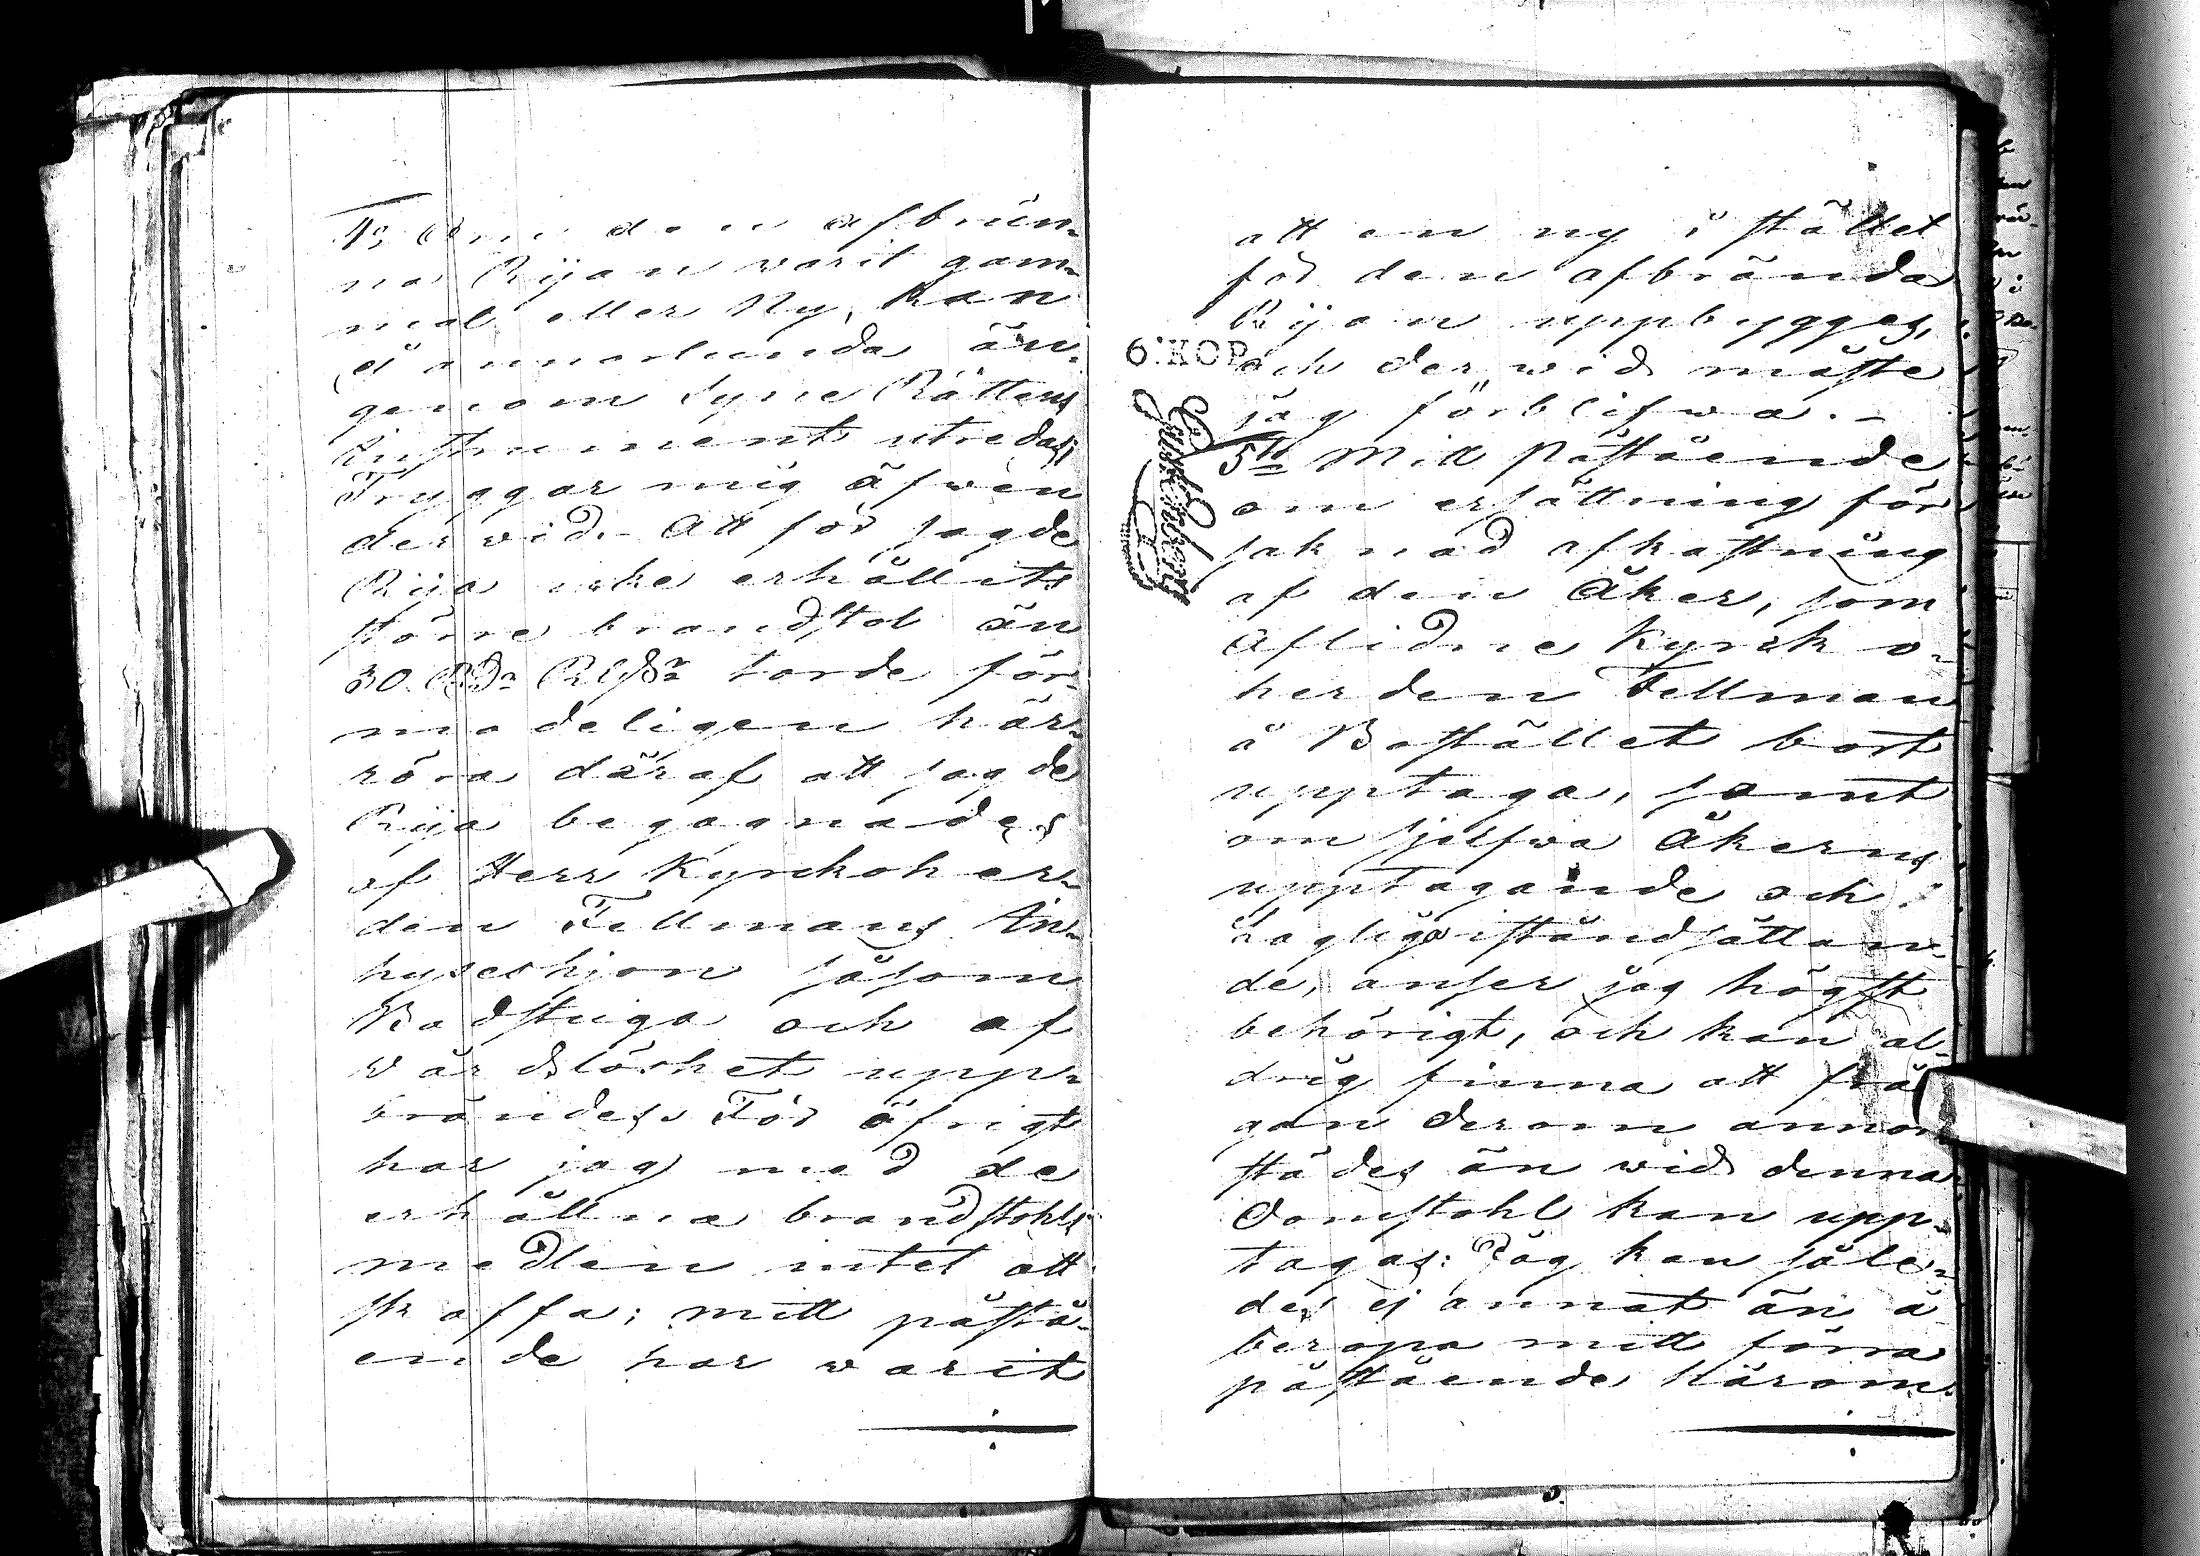 4o Om den afbrun-
na Rijan warit gam-
mal eller Ny, kan
ei annorlunda än
genom Syne Rättens
Instrument utredas;
Tryggar mig äfwen
derwid. Att för sagde
Rija icke erhållits
större brandstol än
30. Rdr Rgsdr torde för-
modeligen här-
röra däraf att sagde
Rija begagnades
af Herr Kyrckoher-
den Fellmans In-
hyseshjon såsom
Badstuga och af
wårdslöshet upp-
brändes. För öfrigt
har jag med de
erhållna brandstohls
medlen intet att
skaffa; mitt påstå-
ende har warit
att en ny i stället
för den afbrända
Rijan uppbygges,
6 KOP.
och derwid måste
jag förblifwa.-
5to Mitt Påstående
om ersättning för
saknad afkastning
af den Åker, som
Aflidne Kyrcko-
herden Fellman
å Bostället bort
upptaga, samt
om sjelfwa Åkerns
upptagande och
Laglige iståndsättan-
de, anser jag högst
behörigt, och kan al-
drig finna att frå-
gan derom annor
städes än wid denna
Domstohl kan upp-
tagas: Jag kan såle-
des ej annat än å
beropa mitt förra
påstående härom.